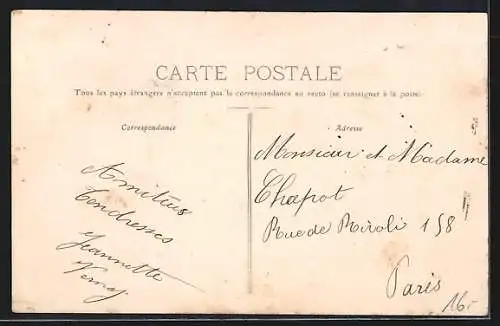 CARTE POSTALE
Tous les pays étrangers n'acceptent pas la correspondance au recto (se renseigner à la poste)
Correspondance
Adresse
Amitiés
tendresses
Jeannette
Monsieur et Madame
Chapot
Rue de Rivoli 158
Paris
16.-